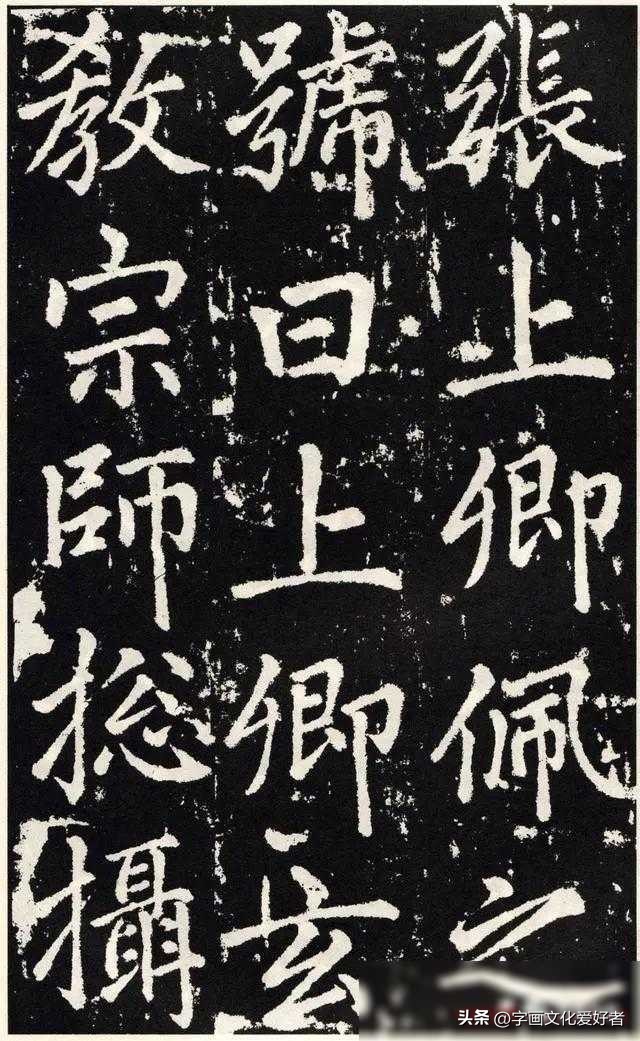 張上卿佩
號曰上卿玄
教宗師揔攝
头条 @字画文化爱好者